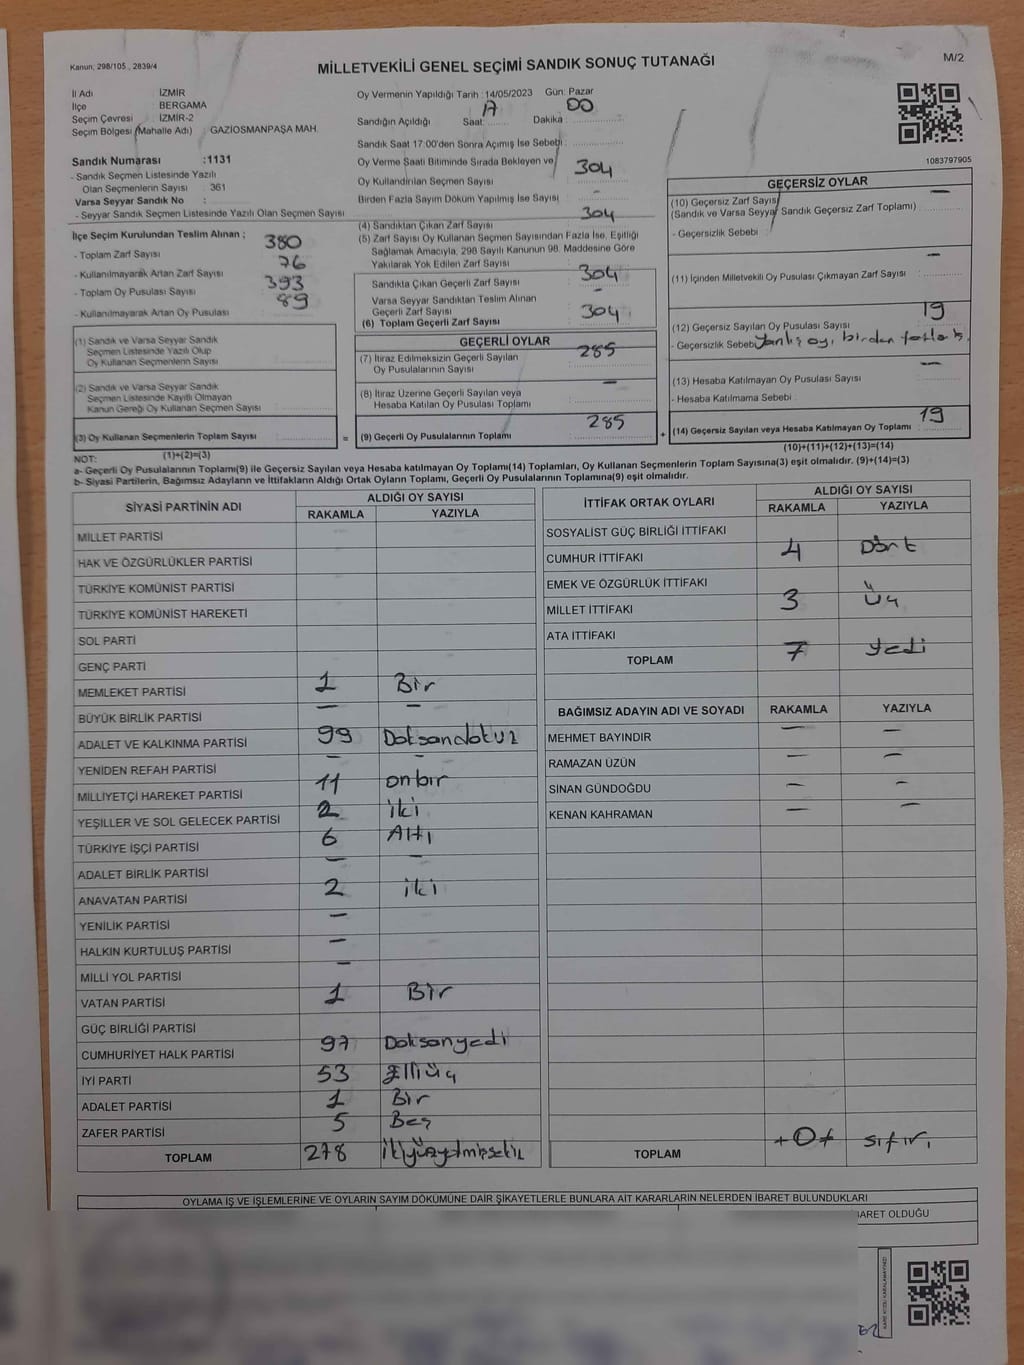 Kanun: 298/105., 2839/4
MİLLETVEKİLİ GENEL SEÇİMİ SANDIK SONUÇ TUTANAĞI
M/2
İl Adı İZMİR
İlçe BERGAMA
Seçim Çevresi İZMİR-2
Seçim Bölgesi (Mahalle Adı) : GAZİOSMANPAŞA MAH.
Sandık Numarası :1131
- Sandık Seçmen Listesinde Yazılı
Olan Seçmenlerin Sayısı : 361
Varsa Seyyar Sandık No :
- Seyyar Sandık Seçmen Listesinde Yazılı Olan Seçmen Sayısı
İlçe Seçim Kurulundan Teslim Alınan ;
- Toplam Zarf Sayısı 380
- Kullanılmayarak Artan Zarf Sayısı 76
- Toplam Oy Pusulası Sayısı 393
- Kullanılmayarak Artan Oy Pusulası 89
(1) Sandık ve Varsa Seyyar Sandık
Seçmen Listesinde Yazılı Olup
Oy Kullanan Seçmenlerin Sayısı
(2) Sandık ve Varsa Seyyar Sandık
Seçmen Listesinde Kayıtlı Olmayan
Kanun Gereği Oy Kullanan Seçmen Sayısı
(3) Oy Kullanan Seçmenlerin Toplam Sayısı =
(1)+(2)=(3)
Oy Vermenin Yapıldığı Tarih : 14/05/2023 Gün: Pazar
Sandığın Açıldığı Saat: 17 Dakika : 00
Sandık Saat 17:00'den Sonra Açımış İse Sebebi :
Oy Verme Saati Bitiminde Sırada Bekleyen ve
Oy Kullandırılan Seçmen Sayısı 304
Birden Fazla Sayım Döküm Yapılmış İse Sayısı : -
(4) Sandıktan Çıkan Zarf Sayısı 304
(5) Zarf Sayısı Oy Kullanan Seçmen Sayısından Fazla İse, Eşitliği
Sağlamak Amacıyla, 298 Sayılı Kanunun 98. Maddesine Göre
Yakılarak Yok Edilen Zarf Sayısı
Sandıkta Çıkan Geçerli Zarf Sayısı 304
Varsa Seyyar Sandıktan Teslim Alınan
Geçerli Zarf Sayısı -
(6) Toplam Geçerli Zarf Sayısı 304
GEÇERLİ OYLAR
(7) İtiraz Edilmeksizin Geçerli Sayılan
Oy Pusulalarının Sayısı 285
(8) İtiraz Üzerine Geçerli Sayılan veya
Hesaba Katılan Oy Pusulası Toplamı -
(9) Geçerli Oy Pusulalarının Toplamı 285 +
1083797905
GEÇERSİZ OYLAR
(10) Geçersiz Zarf Sayısı -
(Sandık ve Varsa Seyyar Sandık Geçersiz Zarf Toplamı)
- Geçersizlik Sebebi :
(11) İçinden Milletvekili Oy Pusulası Çıkmayan Zarf Sayısı -
(12) Geçersiz Sayılan Oy Pusulası Sayısı 19
- Geçersizlik Sebebi Yanlış oy, birden fazla
(13) Hesaba Katılmayan Oy Pusulası Sayısı -
- Hesaba Katılmama Sebebi :
(14) Geçersiz Sayılan veya Hesaba Katılmayan Oy Toplamı 19
(10)+(11)+(12)+(13)=(14)
NOT:
a- Geçerli Oy Pusulalarının Toplamı(9) ile Geçersiz Sayılan veya Hesaba katılmayan Oy Toplamı(14) Toplamları, Oy Kullanan Seçmenlerin Toplam Sayısına(3) eşit olmalıdır. (9)+(14)=(3)
b- Siyasi Partilerin, Bağımsız Adayların ve İttifakların Aldığı Ortak Oyların Toplamı, Geçerli Oy Pusulalarının Toplamına(9) eşit olmalıdır.
SİYASİ PARTİNİN ADI ALDIĞI OY SAYISI
RAKAMLA YAZIYLA
MİLLET PARTİSİ
HAK VE ÖZGÜRLÜKLER PARTİSİ
TÜRKİYE KOMÜNİST PARTİSİ
TÜRKİYE KOMÜNİST HAREKETİ
SOL PARTİ
GENÇ PARTİ
MEMLEKET PARTİSİ 1 Bir
BÜYÜK BİRLİK PARTİSİ - -
ADALET VE KALKINMA PARTİSİ 99 Doksandokuz
YENİDEN REFAH PARTİSİ - -
MİLLİYETÇİ HAREKET PARTİSİ 11 onbir
YEŞİLLER VE SOL GELECEK PARTİSİ 2 iki
TÜRKİYE İŞÇİ PARTİSİ 6 Altı
ADALET BİRLİK PARTİSİ - -
ANAVATAN PARTİSİ 2 iki
YENİLİK PARTİSİ -
HALKIN KURTULUŞ PARTİSİ -
MİLLİ YOL PARTİSİ -
VATAN PARTİSİ 1 Bir
GÜÇ BİRLİĞİ PARTİSİ
CUMHURİYET HALK PARTİSİ 97 Doksanyedi
İYİ PARTİ 53 Elliüç
ADALET PARTİSİ 1 Bir
ZAFER PARTİSİ 5 Beş
TOPLAM 278 ikiyüzyetmişsekiz
İTTİFAK ORTAK OYLARI ALDIĞI OY SAYISI
RAKAMLA YAZIYLA
SOSYALİST GÜÇ BİRLİĞİ İTTİFAKI
CUMHUR İTTİFAKI 4 Dört
EMEK VE ÖZGÜRLÜK İTTİFAKI
MİLLET İTTİFAKI 3 Üç
ATA İTTİFAKI
TOPLAM 7 yedi
BAĞIMSIZ ADAYIN ADI VE SOYADI RAKAMLA YAZIYLA
MEHMET BAYINDIR - -
RAMAZAN ÜZÜN - -
SİNAN GÜNDOĞDU - -
KENAN KAHRAMAN - -
TOPLAM +0+ sıfır
OYLAMA İŞ VE İŞLEMLERİNE VE OYLARIN SAYIM DÖKÜMÜNE DAİR ŞİKAYETLERLE BUNLARA AİT KARARLARIN NELERDEN İBARET BULUNDUKLARI
İBARET OLDUĞU